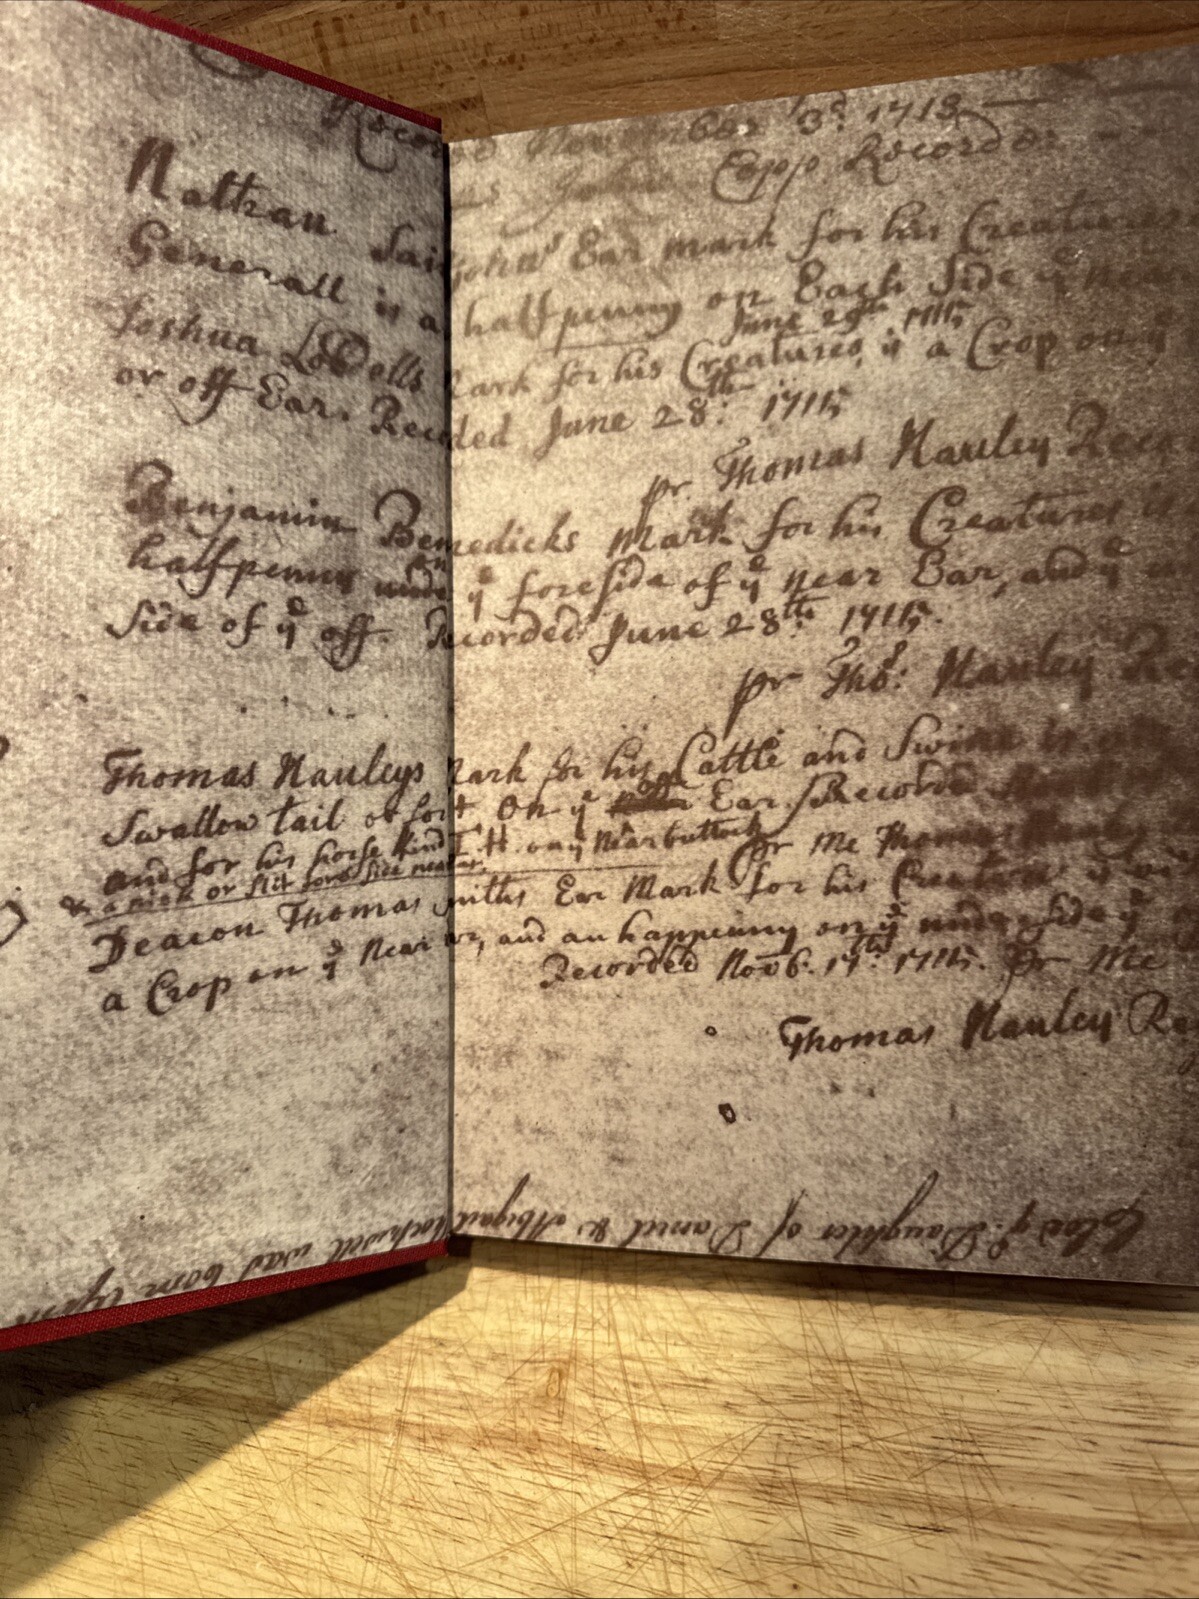 Record November 3d. 1713
Copp Recorder
Nathan Saijohns Ear mark for his Creatures
Generall is a halfpenny on Each Side ye near
June 29th 1715
Joshua LoBdells Mark for his Creatures is a Crop on ye
or off Ear. Recorded June 28th: 1715
pr. Thomas Hauley
Benjamin Benedicks Mark for his Creatures is
halfpenny under ye foreside of ye near Ear, and ye
Side of ye off. Recorded June 28th: 1715.
pr Thos: Hauley
Thomas Hauleys Mark for his Cattle and Swine is
Swallow tail or fort On ye Ear. Recorded
and for his horse kind T.H. on ye Near buttock pr Me Thomas
& a nick or slit fore side near
Deacon Thomas Smiths Ear Mark for his Creatures is
a Crop on ye Near Ear, and an happenny on ye under Side ye
Recorded Novb. 17th: 1715. pr Me
Thomas Hauley Re
ye. Daughter of Daniel & Abigail was born